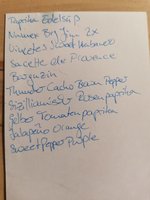 Paprika Edelsüß
Numex Big Jim 2x
Vincetes Sweet Habanero
Sucette de Provence
Berguzin
Thunder Cacho Bean Pepper
Sizilianischer Rosenpaprika
Gelber Tomatenpaprika
Jalapeño Orange
Sweet Pepper Purple